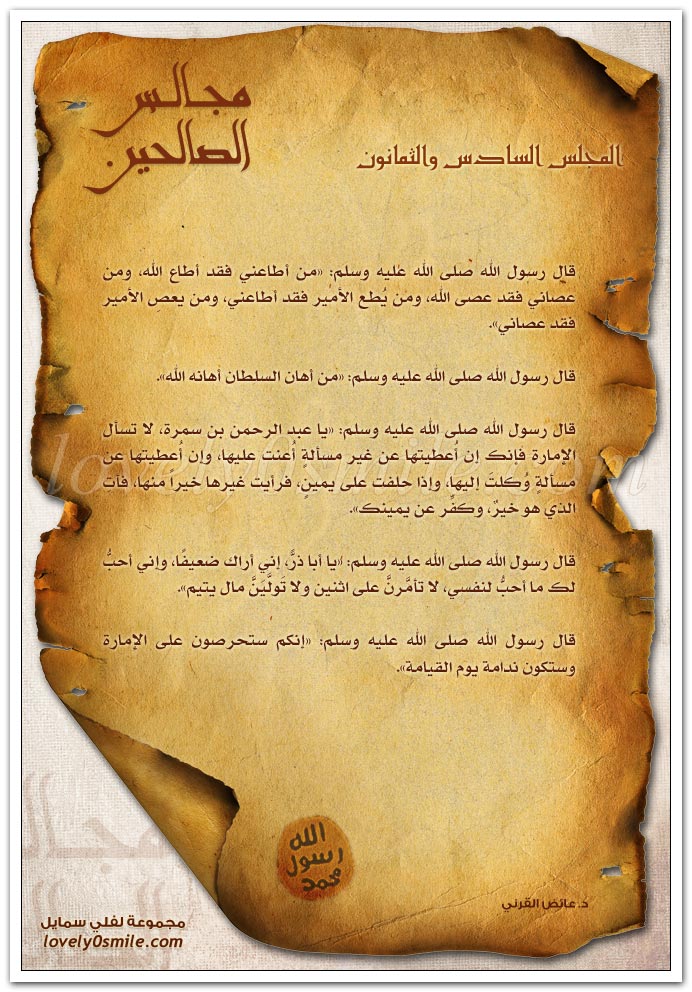 مجالس
الصالحين
المجلس السادس والثمانون
قال رسول الله صلى الله عليه وسلم: «من أطاعني فقد أطاع الله، ومن
عصاني فقد عصى الله، ومن يُطع الأمير فقد أطاعني، ومن يعصِ الأمير
فقد عصاني».
قال رسول الله صلى الله عليه وسلم: «من أهان السلطان أهانه الله».
قال رسول الله صلى الله عليه وسلم: «يا عبد الرحمن بن سمرة، لا تسأل
الإمارة فانك إن أعطيتها عن غير مسألةٍ أعنت عليها، وإن أعطيتها عن
مسألةٍ وُكلتَ إليها، وإذا حلفت على يمينٍ، فرأيت غيرها خيراً منها، فأت
الذي هو خيرٌ، وكفِّر عن يمينك».
قال رسول الله صلى الله عليه وسلم: «يا أبا ذرَّ، إني أراك ضعيفًا، وإني أحبُّ
لك ما أحبُّ لنفسي، لا تأمَّرنَّ على اثنين ولا تَولَّيَنَّ مال يتيم».
قال رسول الله صلى الله عليه وسلم: «إنكم ستحرصون على الإمارة
وستكون ندامة يوم القيامة».
lovely0smile.com
الله
رسول
محمد
د.عائض القرني
مجموعة لفلي سمايل
lovely0smile.com